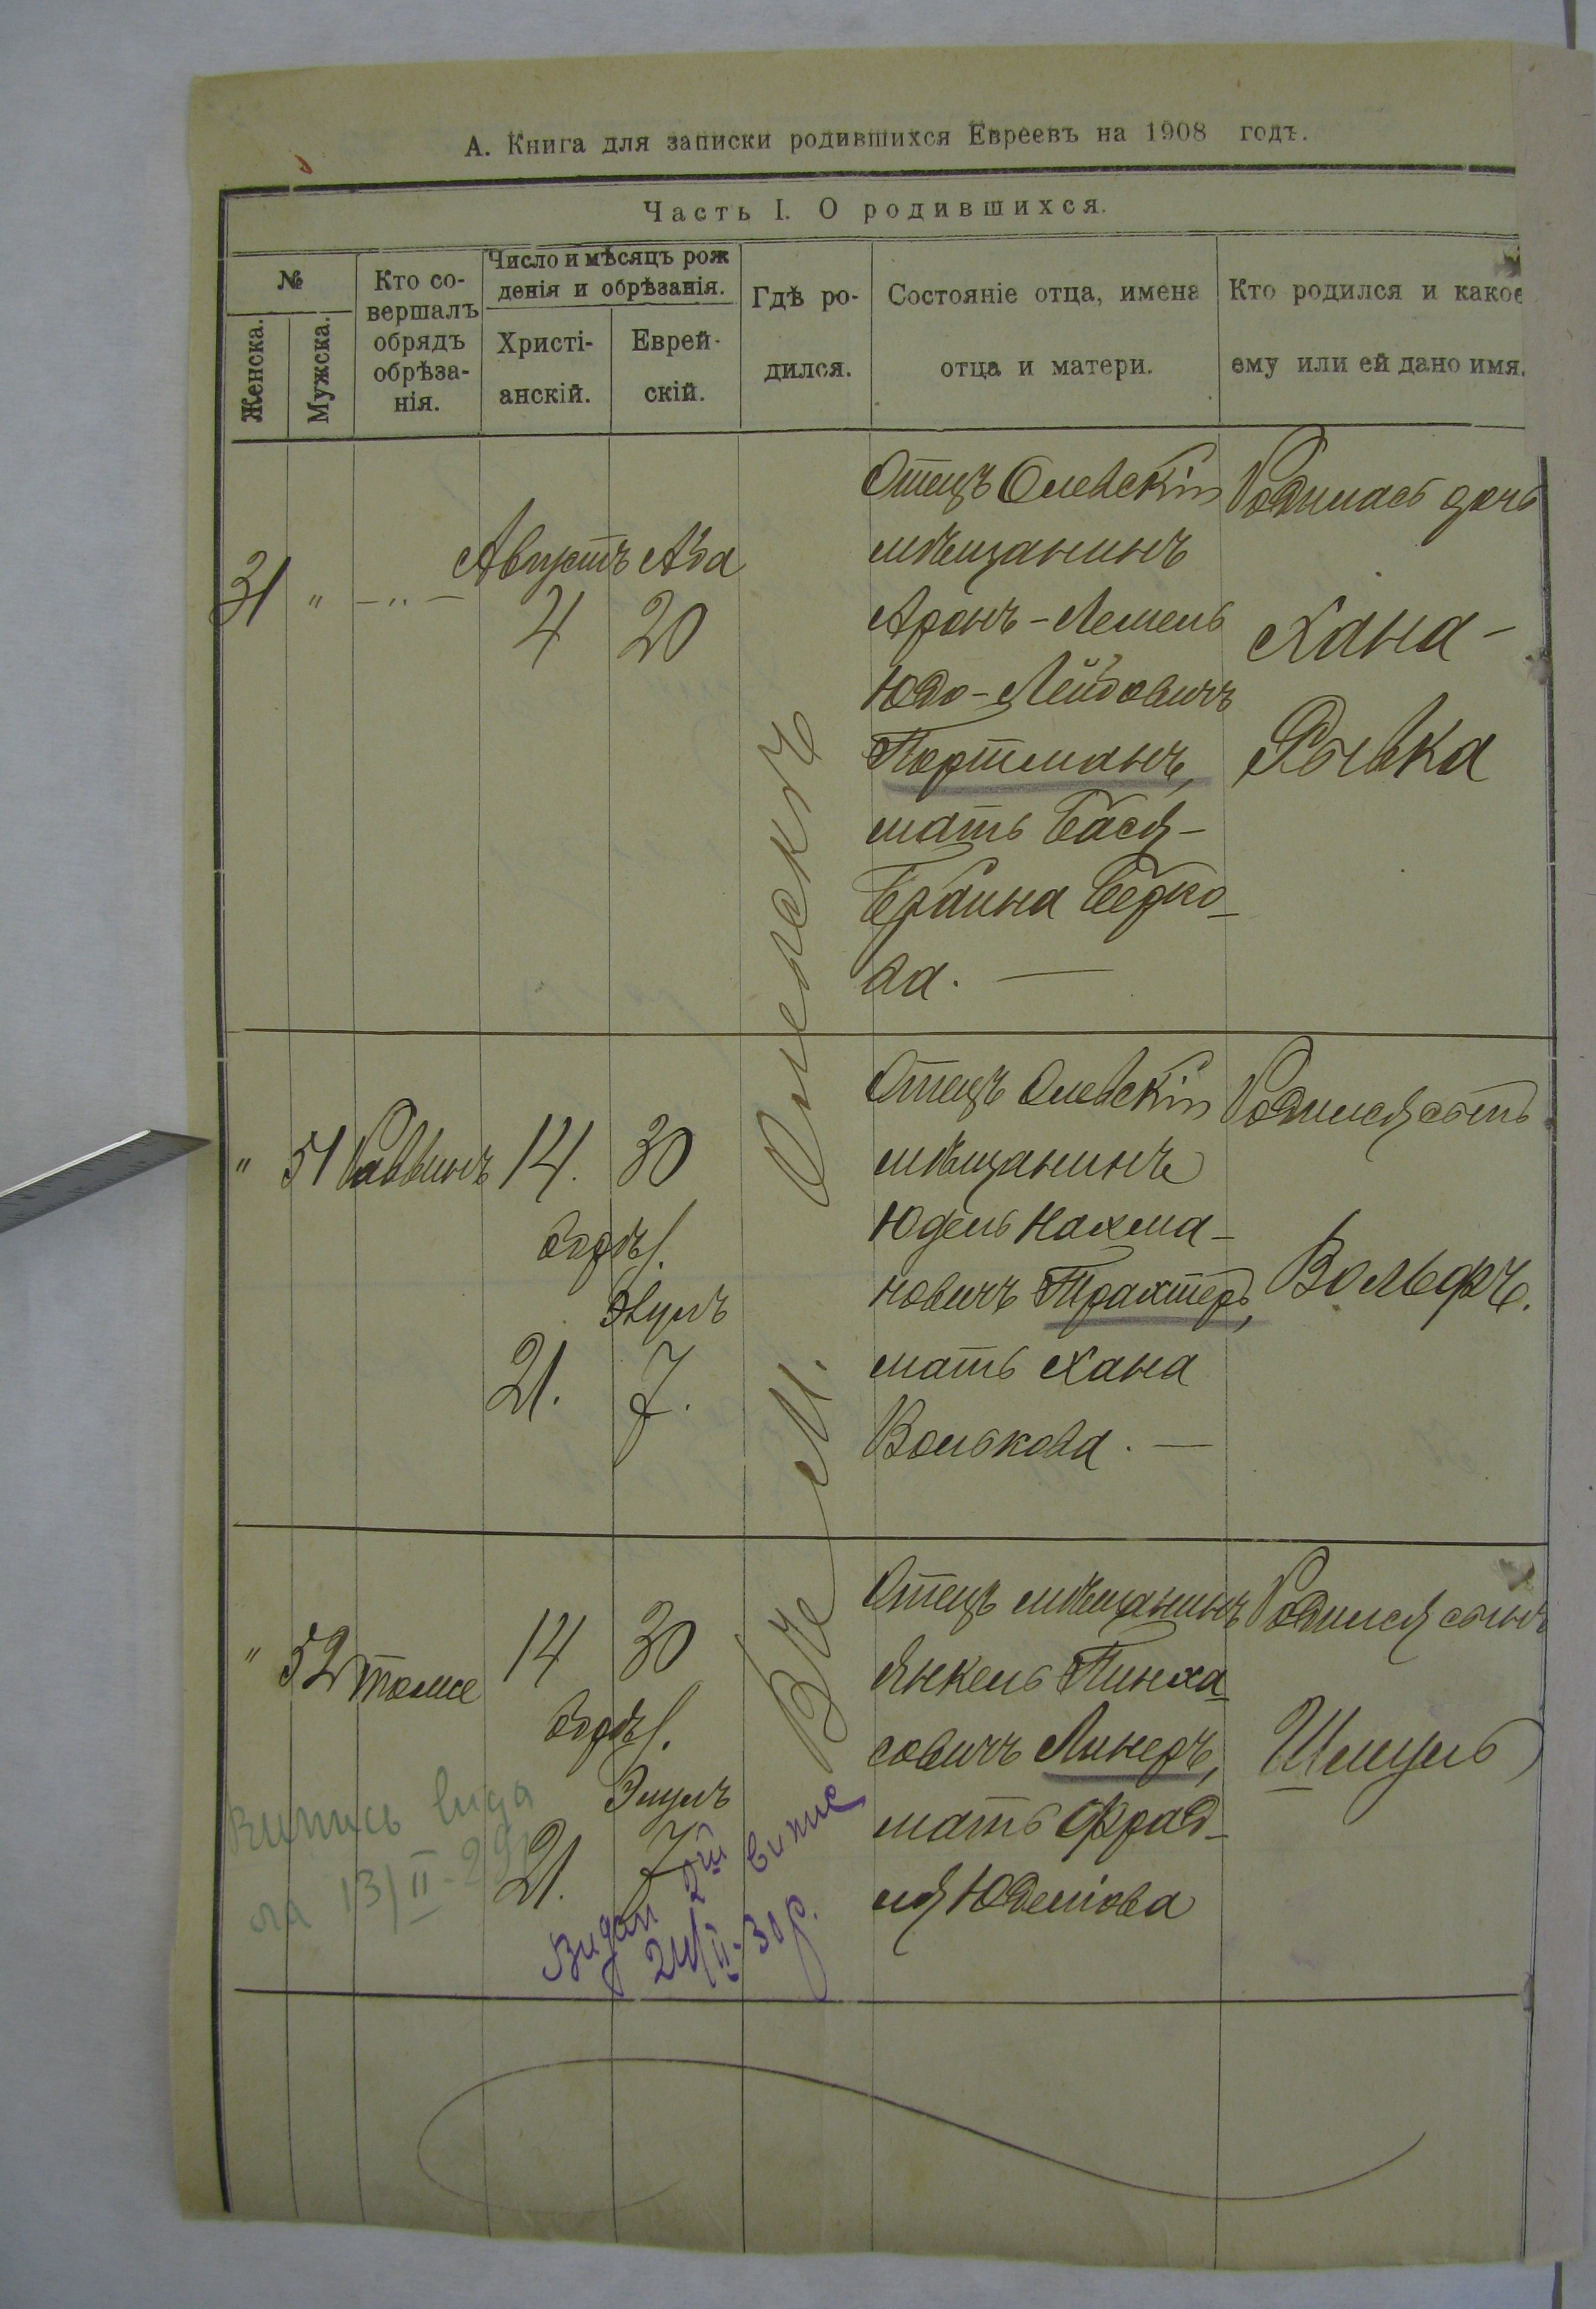 А. Книга для записки родившихся Евреевъ на 1908 годъ.
Часть I. О родившихся.
№
Женска.
Мужска.
Кто со-
вершалъ
обрядъ
обрѣза-
нія.
Число и мѣсяцъ рож
денія и обрѣзанія.
Христі-
анскій.
Еврей-
скій.
Гдѣ ро-
дился.
Состояніе отца, имена
отца и матери.
Кто родился и какое
ему или ей дано имя.
Въ м. Олевскѣ
31 " — " — Августъ Ава
4 20
Отецъ Олевскій
мѣщанинъ
Аронъ-Лемель
Юдо-Лейбовичъ
Портманъ,
мать Бася-
Браина Берко-
ва. —
Родилась дочь
Хана-
Рывка
" 51 Раввинъ 14. 30
обрѣз.
Элулъ
21. 7.
Отецъ Олевскій
мѣщанинъ
Юдель Нахма-
новичъ Трахтеръ,
мать Хана
Волькова. —
Родился сынъ
Вольфъ.
" 52 тоже 14 30
обрѣз.
Элулъ
21. 7
Отецъ мѣщанинъ
Янкель Пинха-
совичъ Линеръ,
мать Фрад-
ля Юделіова
Родился сынъ
Шмуль
Випись вида
на 13/II-29
Видан 2ий випис
24/II-30р.